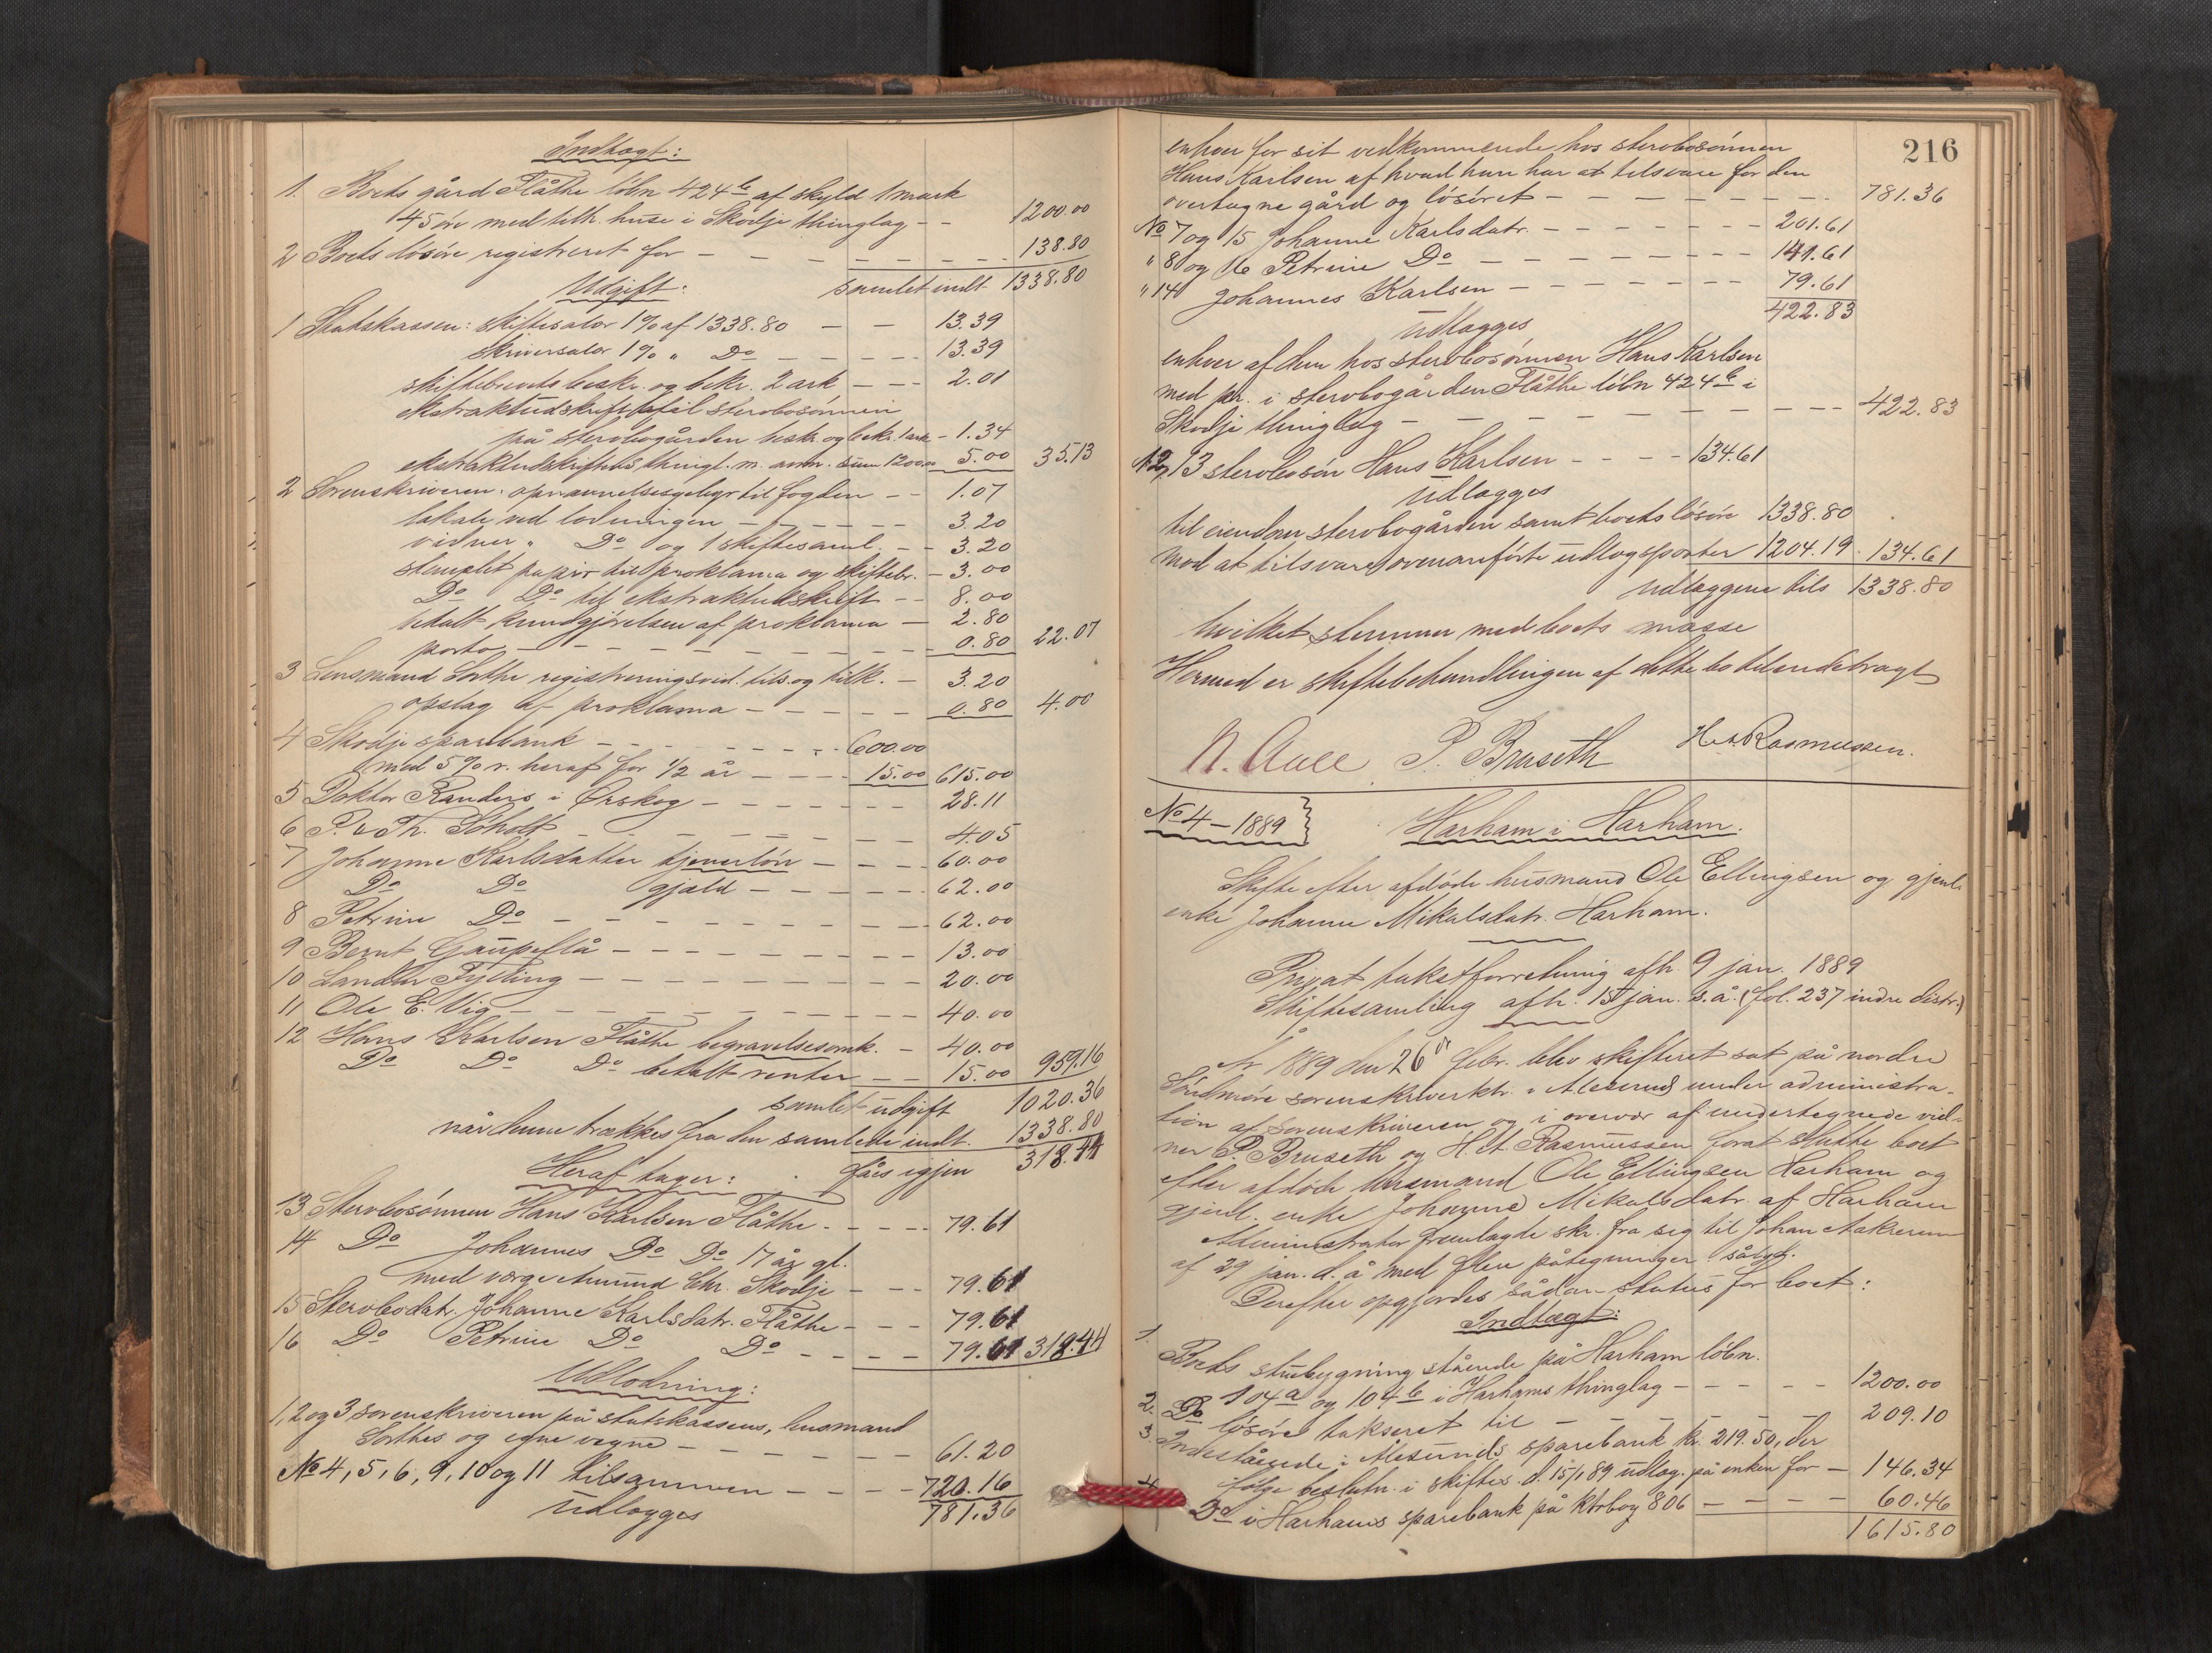 Indtægt:
1. Boets gård Flåthe löbn 424b af skyld 1 mark
45 öre med tilh. huse i Skodje thinglag - - 1200.00
2 Boets lösöre registreret for - - - - - - - 138.80
Udgift: samlet indt 1338.80
1 Statskassen: skiftesalær 1% af 1338.80 - - 13.39
skriversalær 1% " Do - - - - 13.39
skiftebrevets beskr. og bekr. 2 ark - - - 2.01
ekstraktudskrift til sterbosönnen
på sterbogården beskr. og bekr. 1 ark - 1.34
ekstraktudskriftens thingl. m. anm. sum 1200.00 5.00 35.13
2 Sorenskriveren: opnævnelsesgebyr til fogden - - 1.07
lokale ved lodningen - - - - - - 3.20
vidner " Do og 1 skiftesaml. - - 3.20
stemplet papir til proklama og skiftebr. - 3.00
Do Do til ekstraktudskrift - - 8.00
betalt kundgjörelsen af proklama - 2.80
porto - - - - - - - - - - 0.80 22.07
3 Lensmand Sorthe registreringsvid. tils. og tilk. - 3.20
opslag af proklama - - - - - 0.80 4.00
4 Skodje sparebank - - - - - - - - 600.00
med 5% r. heraf for 1/2 år - - - - 15.00 615.00
5 Doktor Randers i Ørskog - - - - - - - 28.11
6 P. & Th. Söholt - - - - - - - - 4.05
7 Johanne Karlsdatter tjenerlön - - - - 60.00
Do Do gjæld - - - - - - 62.00
8 Petrine Do - - - - - - - - - - 62.00
9 Bernt Gaupeflå - - - - - - - - - 13.00
10 Landh. Fylling - - - - - - - - - 20.00
11 Ole E. Vig - - - - - - - - - - - 40.00
12 Hans Karlsen Flåthe begravelsesomk. - 40.00
Do Do Do betalt renter - - 15.00 959.16
samlet udgift 1020.36
når denne trækkes fra den samlede indt. 1338.80
Heraf tager: fåes igjen 318.44
13 Sterbosönnen Hans Karlsen Flåthe - - - - - 79.61
14 Do Johannes Do Do 17 år gl.
med værge Amund Chr. Skodje - - - 79.61
15 Sterbodatr. Johanne Karlsdatr. Flåthe - - - 79.61
16 Do Petrine Do Do - - - - 79.61 318.44
Udlodning:
1, 2 og 3 sorenskriveren på statskassens, lensmand
Sorthes og egne vegne - - - - - - - 61.20
No 4, 5, 6, 9, 10 og 11 tilsammen - - - - 720.16
udlægges 781.36
216
enhver for sit vedkommende hos sterbosönnen
Hans Karlsen af hvad han har at tilsvare for den
overtagne gård og lösöret - - - - - - - - 781.36
No 7 og 15 Johanne Karlsdatr. - - - - - - - 201.61
" 8 og 16 Petrine Do - - - - - - - - - 141.61
" 14 Johannes Karlsen - - - - - - - 79.61
udlægges 422.83
enhver af dem hos sterbosönnen Hans Karlsen
med pr. i sterbogården Flåthe löbn 424b i
Skodje thinglag - - - - - - - - - - - 422.83
12, 13 sterbosön Hans Karlsen - - - - 134.61
udlægges
til eiendom sterbogården samt boets lösöre 1338.80
mod at tilsvare forenanförte udlægsposter 1204.19 134.61
udlæggene tils 1338.80
hvilket stemmer med boets masse
Hermed er skiftebehandlingen af dette bo tilendebragt
N. Aall P. Bruseth H. A. Rasmussen.
No 4 - 1889 Harham i Harham.
Skifte efter afdöde husmand Ole Ellingsen og gjenl.
enke Johanne Mikalsdatr. Harham.
Privat takstforretning afh. 9 jan. 1889
Skiftesamling afh. 15 jan. s. å. (fol. 237 indre distr.)
År 1889 den 26de febr. blev skifteret sat på nordre
Söndmöre sorenskriverktr. i Aalesund under administra-
tion af sorenskriveren og i overvær af undertegnede vid-
ner P. Bruseth og H. A. Rasmussen forat slutte boet
efter afdöde husmand Ole Ellingsen Harham og
gjenl. enke Johanne Mikalsdatr. af Harham
Administrator fremlagde skr. fra sig til Johan Aakrerem
af 29 jan. d. å. med flere påtegninger sålyd.
Derefter opgjordes sådan status for boet:
Indtægt:
1. Boets stuebygning stående på Harham löbn.
104a og 104b i Harhams thinglag - - - - - 1200.00
2. Do lösöre takseret til - - - - - - - 209.10
3. Indestående i Aalesunds sparebank kr. 219.50, der
ifölge beslutn. i skiftes. d. 15/1 89 udlæg. på enken for - 146.34
4. Do i Harhams sparebank på ktrbog 806 - - - - 60.46
1615.80